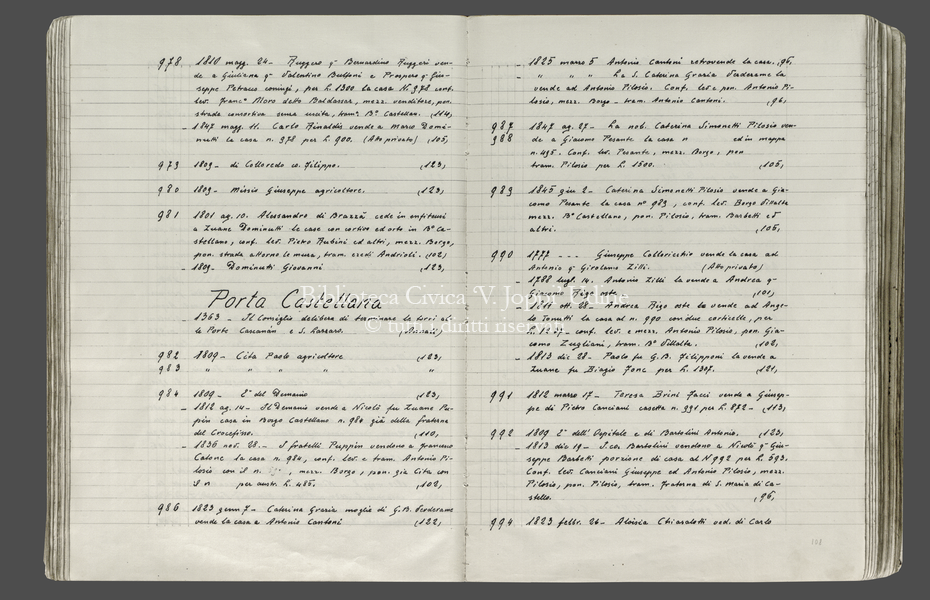 978 1810 magg. 24 - Ruggero q.m Bernardino Ruggeri ven-
de a Giuliana q.m Valentino Bulfoni e Prospero q.m Giu-
seppe Petracco coniugi, per L. 1300 la casa N. 978 conf.
lev. Franc.o Moro detto Baldassa, mezz. venditore, pon.
strada consortiva senza uscita, tram. B.o Castellan. (114)
- 1847 magg. 11. Carlo Rinaldis vende a Marco Domi-
nutti la casa n. 978 per L. 900. (Atto privato) (105)
979 1809 - di Colloredo co. Filippo. (123)
980 1809 - Missio Giuseppe agricoltore. (123)
981 1801 ag. 10. Alessandro di Brazzà cede in enfiteusi
a Zuane Dominutti le case con cortivo ed orto in B.o Ca-
stellano, conf. lev. Pietro Rubini ed altri, mezz. Borgo,
pon. strada attorno le mura, tram. eredi Andrioli. (102)
- 1809 - Dominutti Giovanni (123)
Porta Castellana
- 1363 - Il Consiglio delibera di terminare le torri al-
le Porte e S. Lazzaro. (Annali)
982 1809 - Cita Paolo agricoltore (123)
983 " " " " "
984 1809 - È del Demanio (123)
- 1812 ag. 14 - Il Demanio vende a Nicolò fu Zuane Pu-
pin casa in Borgo Castellano n. 984 già della fraterna
del Crocefisso. (110)
- 1836 nov. 28. - I fratelli Puppin vendono a Francesco
Catone la casa n. 984, conf. lev. e tram. Antonio Pi-
losio con il n. , mezz. Borgo, pon. già Cita con
il n per austr. L. 485. (102)
986 1823 genn. 7 - Caterina Grazia moglie di G.B. Verderame
vende la casa a Antonio Cantoni (122)
- 1825 marzo 5 Antonio Cantoni retrovende la casa. (96)
- " " " La S. Caterina Grazia Verderame la
vende ad Antonio Pilosio. Conf. lev. e pon. Antonio Pi-
losio, mezz. Borgo - tram. Antonio Cantoni. (96)
987 1847 ag. 27 - La nob. Caterina Simonetti Pilosio ven-
988 de a Giacomo Pesante la casa n ed in mappa
n. 495. Conf. lev. Pesante, mezz. Borgo, pon
tram. Pilosio per L. 1500. (105)
989 1845 giu. 2 - Caterina Simonetti Pilosio vende a Gia-
como Pesante la casa n.o 989, conf. lev. Borgo Villalta
mezz. B.o Castellano, pon. Pilosio, tram. Barbetti ed
altri. (105)
990 1777 - - - Giuseppe Colloricchio vende la casa ad
Antonio q.m Girolamo Zilli. (Atto privato)
- 1788 lugl. 14. Antonio Zilli la vende a Andrea q.m
Giacomo Rigo oste (101)
- ott. 28 - Andrea Rigo oste la vende ad Ange-
lo Tonutti la casa al n. 990 con due corticelle, per
L. 1227 - conf. lev. e mezz. Antonio Pilosio, pon. Gia-
como Zugliani, tram. B.o Villalta. (102)
- 1813 dic 28 - Paolo fu G.B. Filipponi la vende a
Zuane fu Biagio Fonc per L. 1307. (121)
991 1812 marzo 17 - Teresa Brini Facci vende a Giusep-
pe di Pietro Canciani casetta n. 991 per L. 872 - (113)
992 1809 È dell'Ospitale e di Bartolini Antonio. (123)
- 1813 dic 19 - I co. Bartolini vendono a Nicolò q.m Giu-
seppe Barbetti porzione di casa al N. 992 per L. 593.
Conf. lev. Canciani Giuseppe ed Antonio Pilosio, mezz.
Pilosio, pon. Pilosio, tram. Fraterna di S. Maria di Ca-
stello. (96)
994 1823 febbr. 26 - Aloisia Chiaralotti ved. di Carlo
Biblioteca Civica 'V. Joppi' Udine
© tutti i diritti riservati